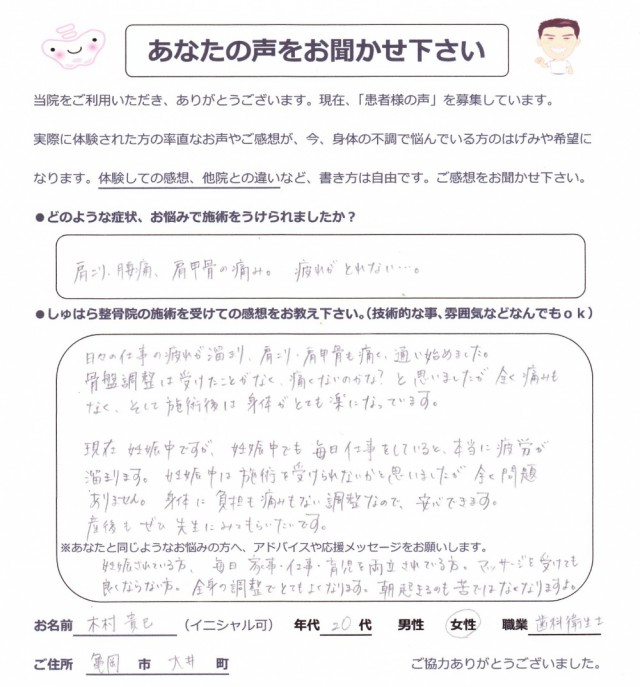 あなたの声をお聞かせ下さい
当院をご利用いただき、ありがとうございます。現在、「患者様の声」を募集しています。
実際に体験された方の率直なお声やご感想が、今、身体の不調で悩んでいる方のはげみや希望に
なります。体験しての感想、他院との違いなど、書き方は自由です。ご感想をお聞かせ下さい。
●どのような症状、お悩みで施術をうけられましたか？
肩こり、腰痛、肩甲骨の痛み。 疲れがとれない…。
●しゅはら整骨院の施術を受けての感想をお教え下さい。（技術的な事、雰囲気などなんでもｏｋ）
日々の仕事の疲れが溜まり、肩こり・肩甲骨も痛く、通い始めました。
骨盤調整は受けたことがなく、痛くないのかな？と思いましたが全く痛みも
なく、そして施術後は身体がとても楽になっています。
現在妊娠中ですが、妊娠中でも毎日仕事をしていると、本当に疲労が
溜まります。妊娠中は施術を受けられないかと思いましたが全く問題
ありません。身体に負担も痛みもない調整なので、安心できます。
産後もぜひ先生にみてもらいたいです。
※あなたと同じようなお悩みの方へ、アドバイスや応援メッセージをお願いします。
妊娠されている方、毎日家事・仕事・育児を両立されている方。マッサージを受けても
良くならない方。全身の調整でとてもよくなります。朝起きるのも苦ではなくなりますよ。
お名前 木村 （イニシャル可） 年代 20 代 男性 女性 職業 歯科衛生士
ご住所 亀岡 市 大井 町 ご協力ありがとうございました。